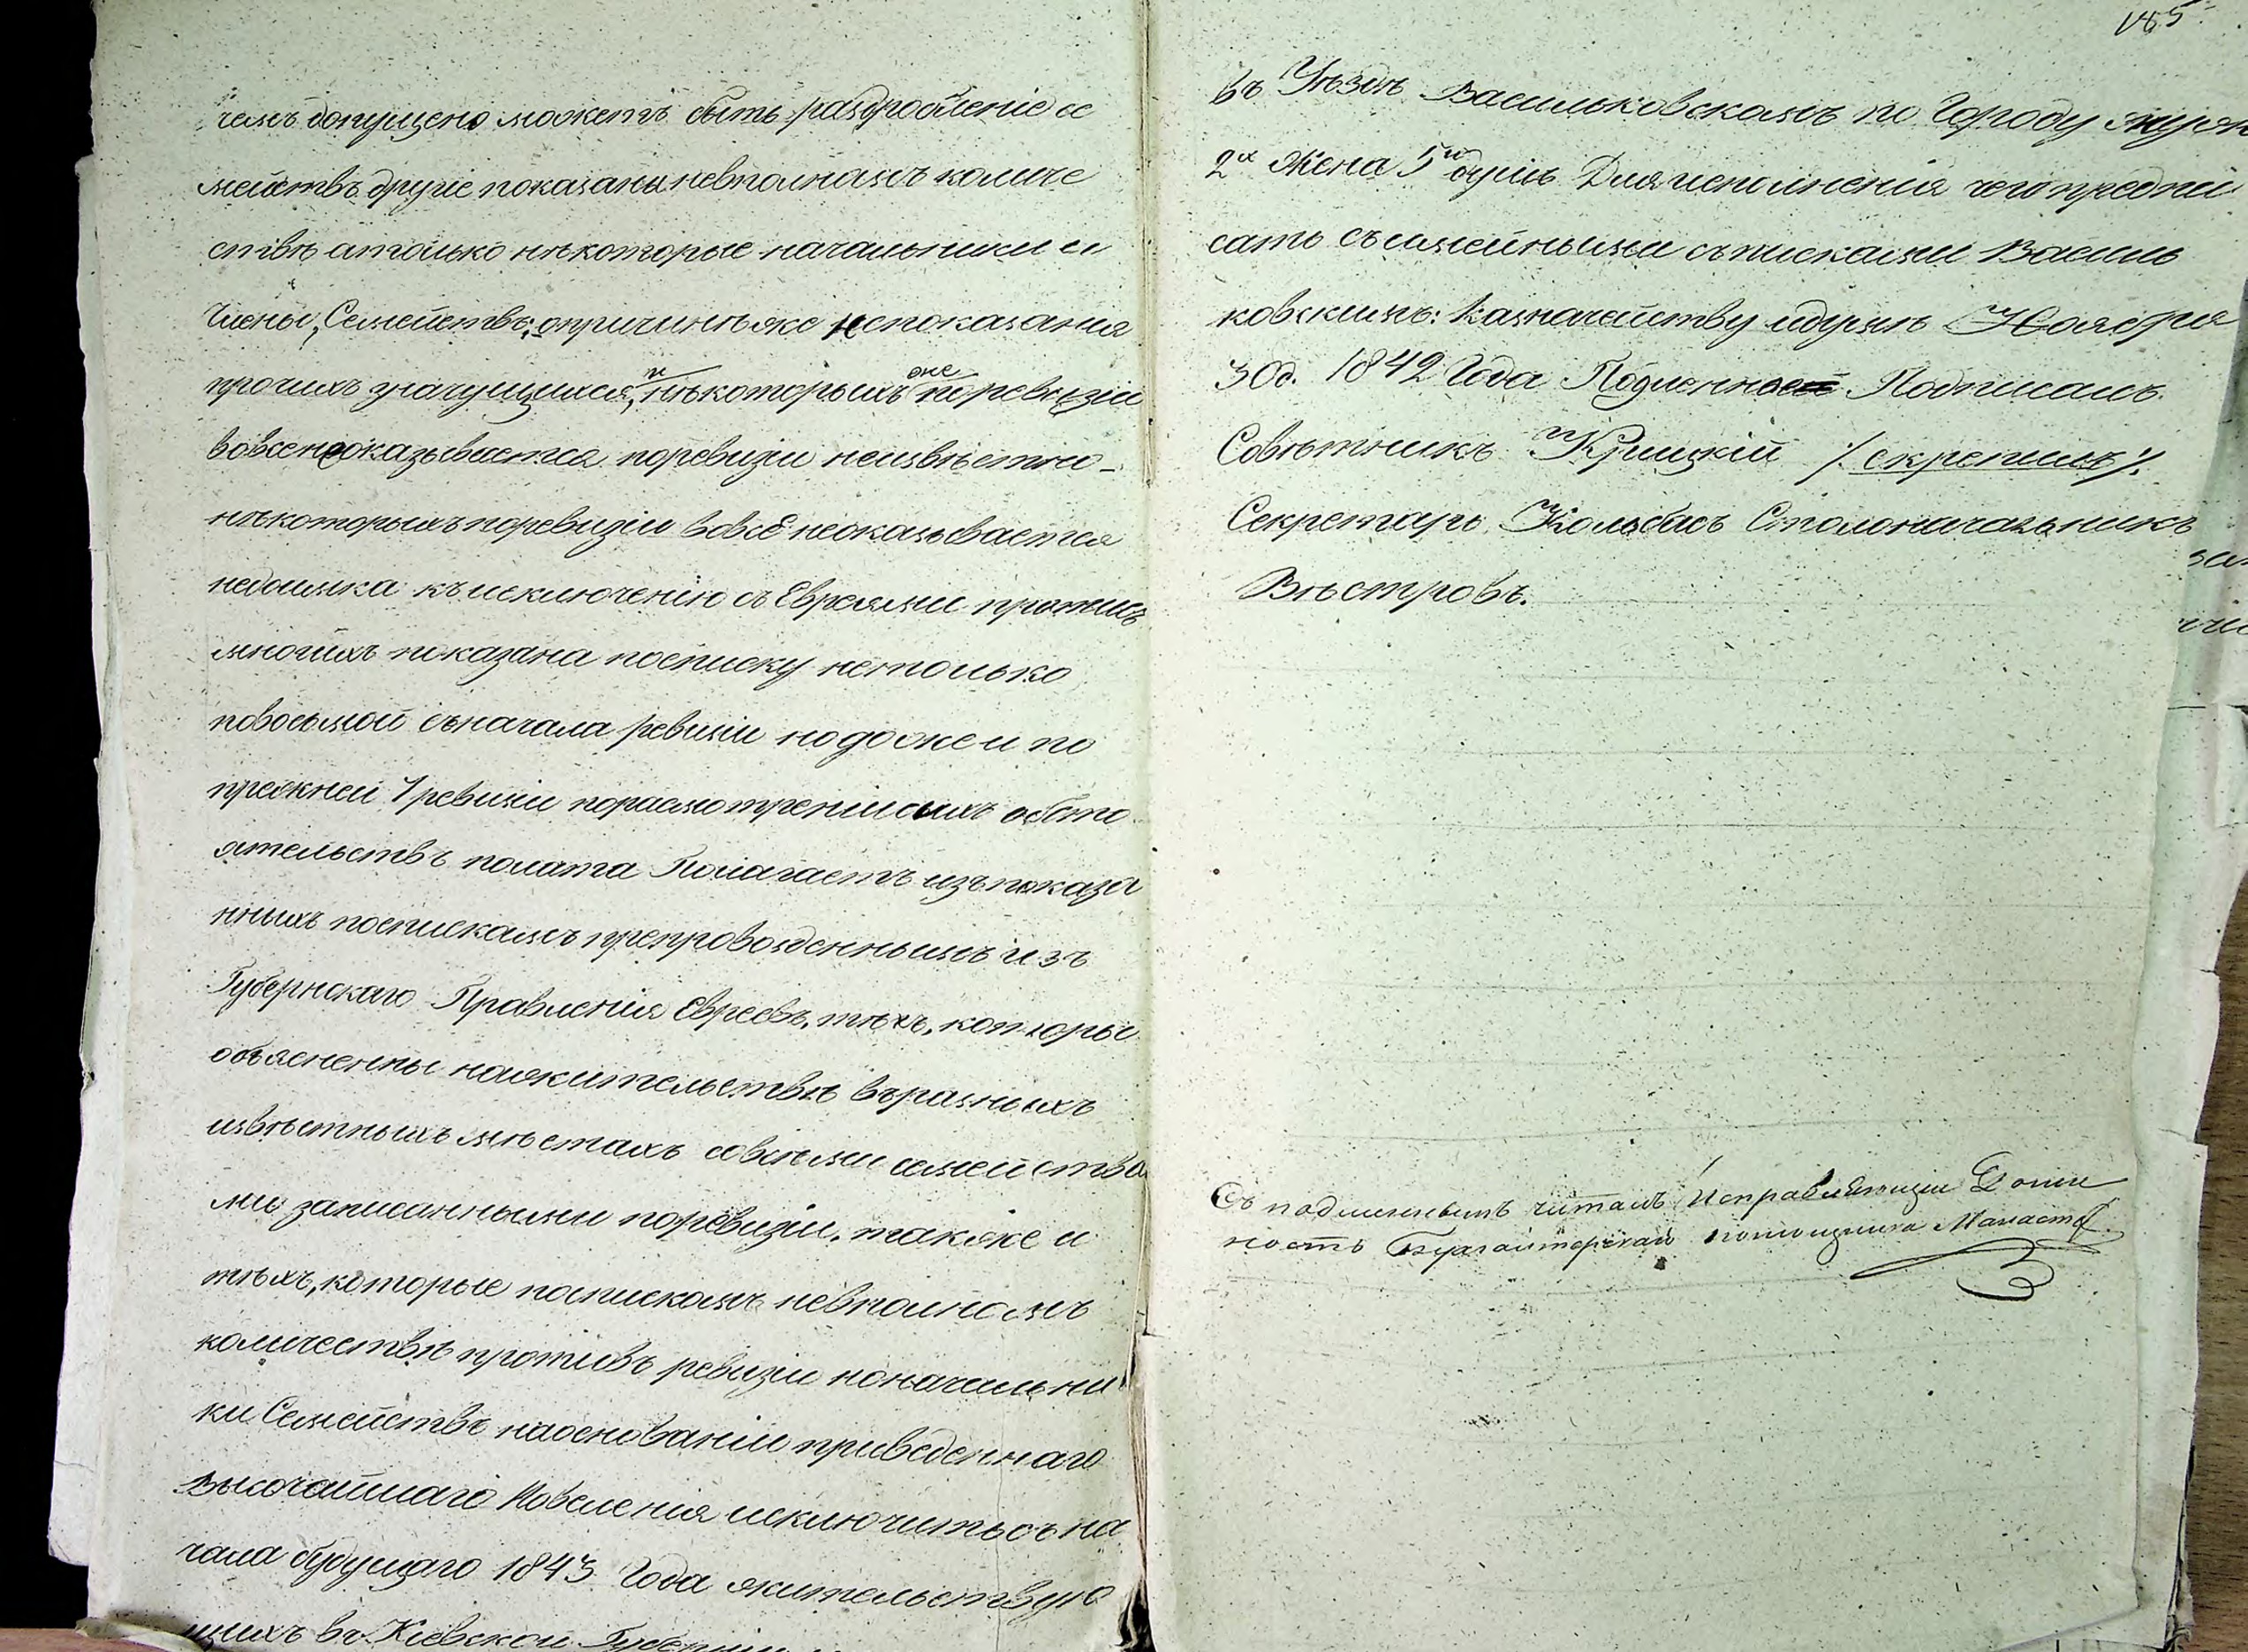 чемъ допущено можетъ быть раздробленіе се
мействъ другіе показаны невполномъ количе
ствѣ атолько нѣкоторые начальники и
Члены, Семействъ; опричинѣже непоказанія
прочихъ значущихся, и нѣкоторыхъ же поревизіи
вовсенеоказывается поревизіи неизвѣстно
нѣкоторыхъ поревизіи вовсе неоказывается
недоимка къисключенію съ Евреями противъ
многихъ показана посписку нетолько
повосьмой сначала ревизіи но доже и по
прежней 7 ревизіи поразсмотреніи сихъ обсто
ятельствъ полата Полагаетъ изъ показа
нныхъ поспискамъ препровожденнымъ изъ
Губернскаго Правленія Евреевъ, тѣхъ, которые
объясненны нажительствѣ въразныхъ
извѣстныхъ мѣстахъ совсѣми семейства
ми записанными поревизіи, также и
тѣхъ, которые поспискамъ невполномъ
количествѣ противъ ревизіи поначальни
ки Семействъ наоснованіи приведеннаго
Высочайшаго Повеленія исключить съ на
чала будущаго 1843 Года жительствую
щихъ въ Кіевской Губерніи
165
въ Уѣздѣ Васильковскомъ по Городу
2х жена 5и душъ Для исполненія чего предпи
сать съсемейными списками Василь
ковскимъ: Казначейству идумѣ Ноября
30д. 1842 Года Подленное Подписалъ
Совѣтникъ Крицкій /: скрепилъ :/
Секретарь Столоначальникъ
Вѣстровъ.
Съ подлиннымъ читалъ Исправляющій Долж
ность Бухгалтерскаго помощника